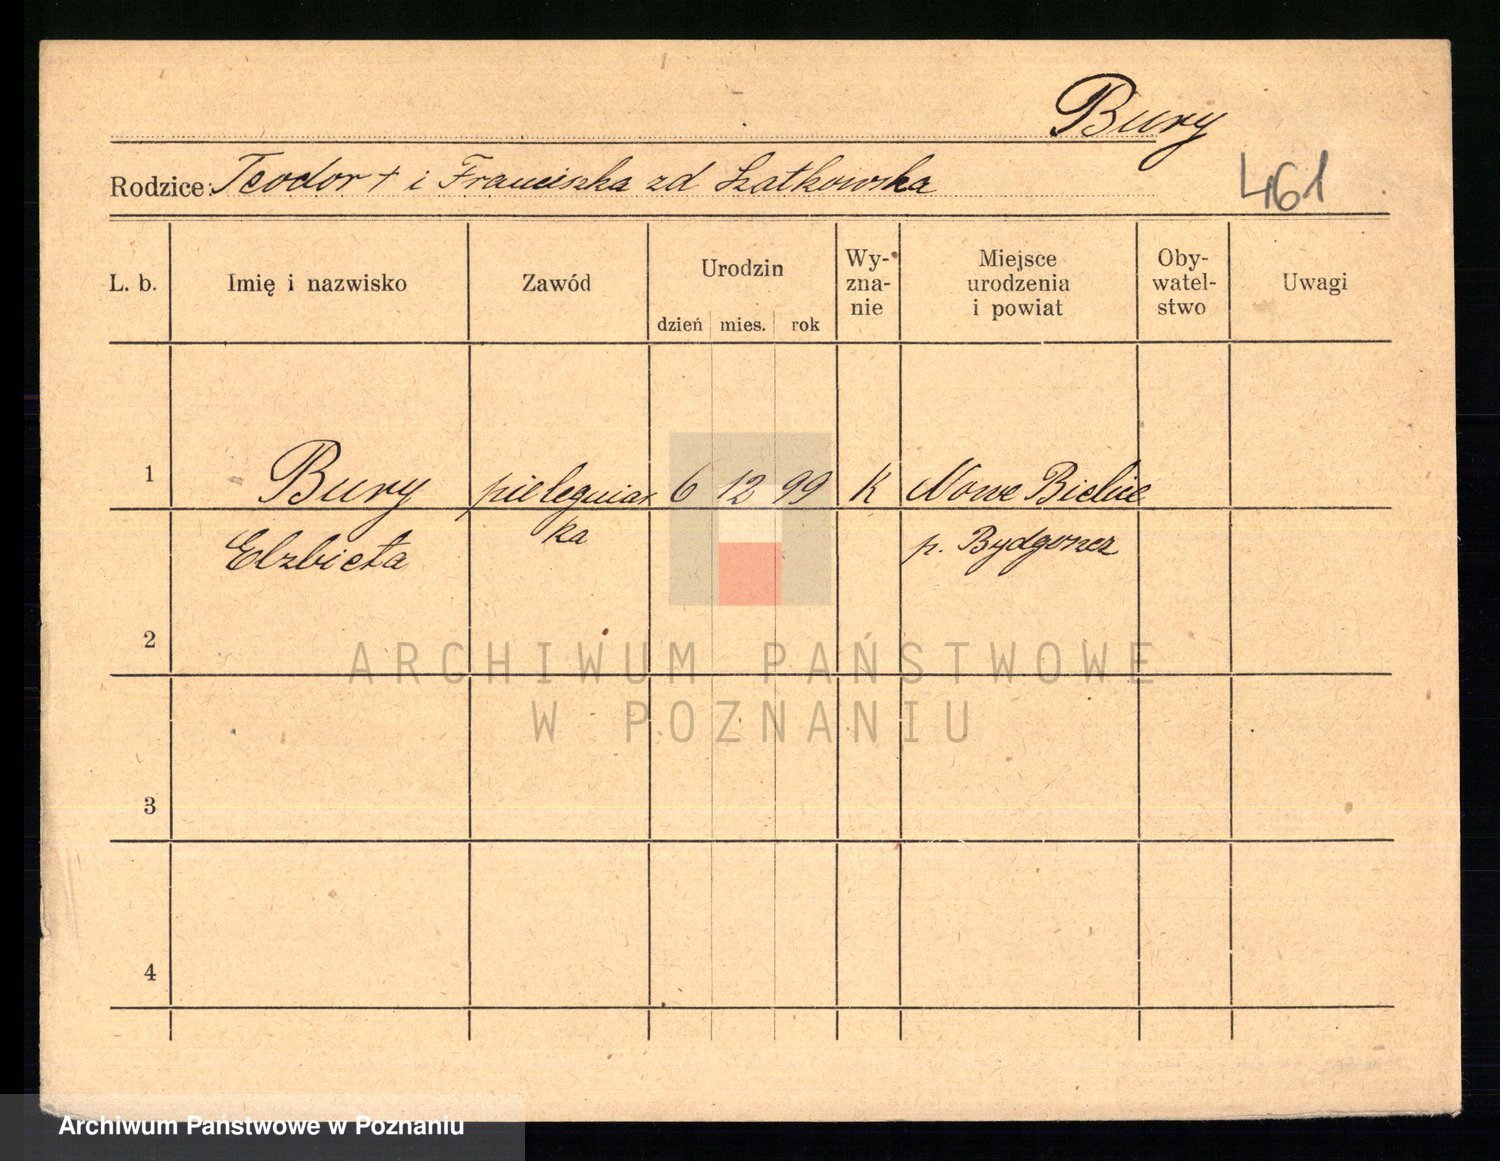 Bury
Rodzice: Teodor + i Franciszka zd Szatkowska
461
L. b. Imię i nazwisko Zawód Urodzin dzień mies. rok Wy-zna-nie Miejsce urodzenia i powiat Oby-watel-stwo Uwagi
1 Bury pielęgniar 6 12 99 K Nowe Bielice
Elzbieta ka p. Bydgoszcz
2
ARCHIWUM PAŃSTWOWE
W POZNANIU
3
4
Archiwum Państwowe w Poznaniu